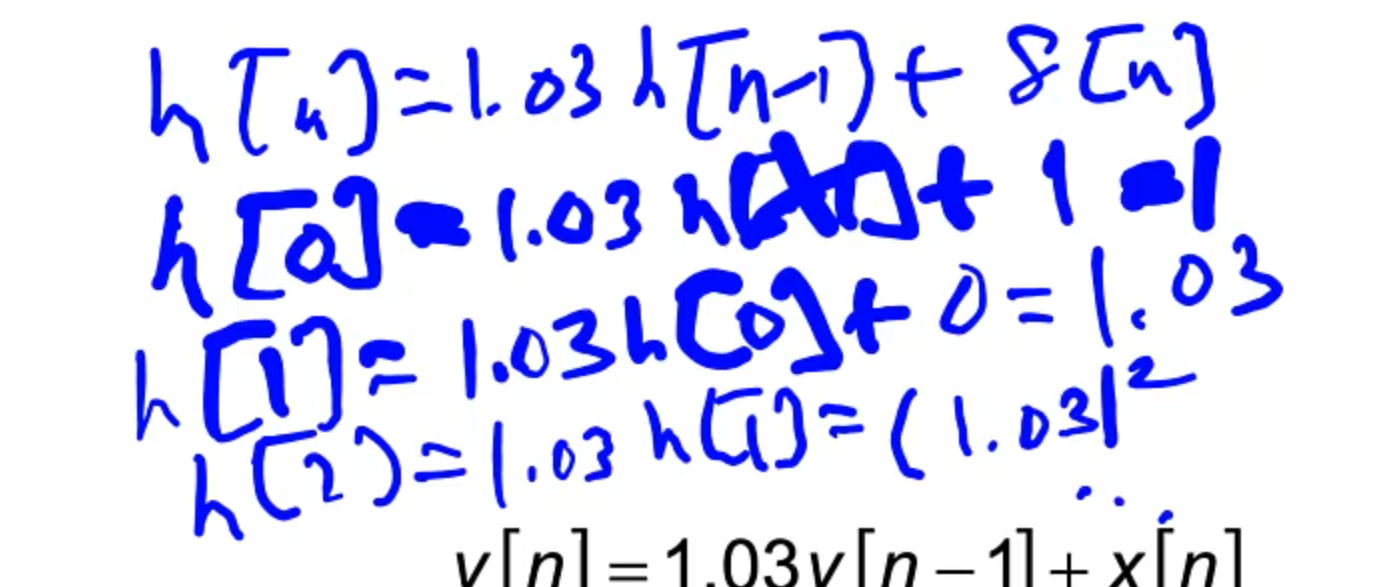 h[n]=1.03 h[n-1]+ δ[n]
h[0]=1.03 h[]+ 1 =1
h[1]= 1.03h[0]+ 0 = 1.03
h(2)=1.03 h[1]= (1.03)²
...
y[n]=1.03y[n−1]+ x[n]